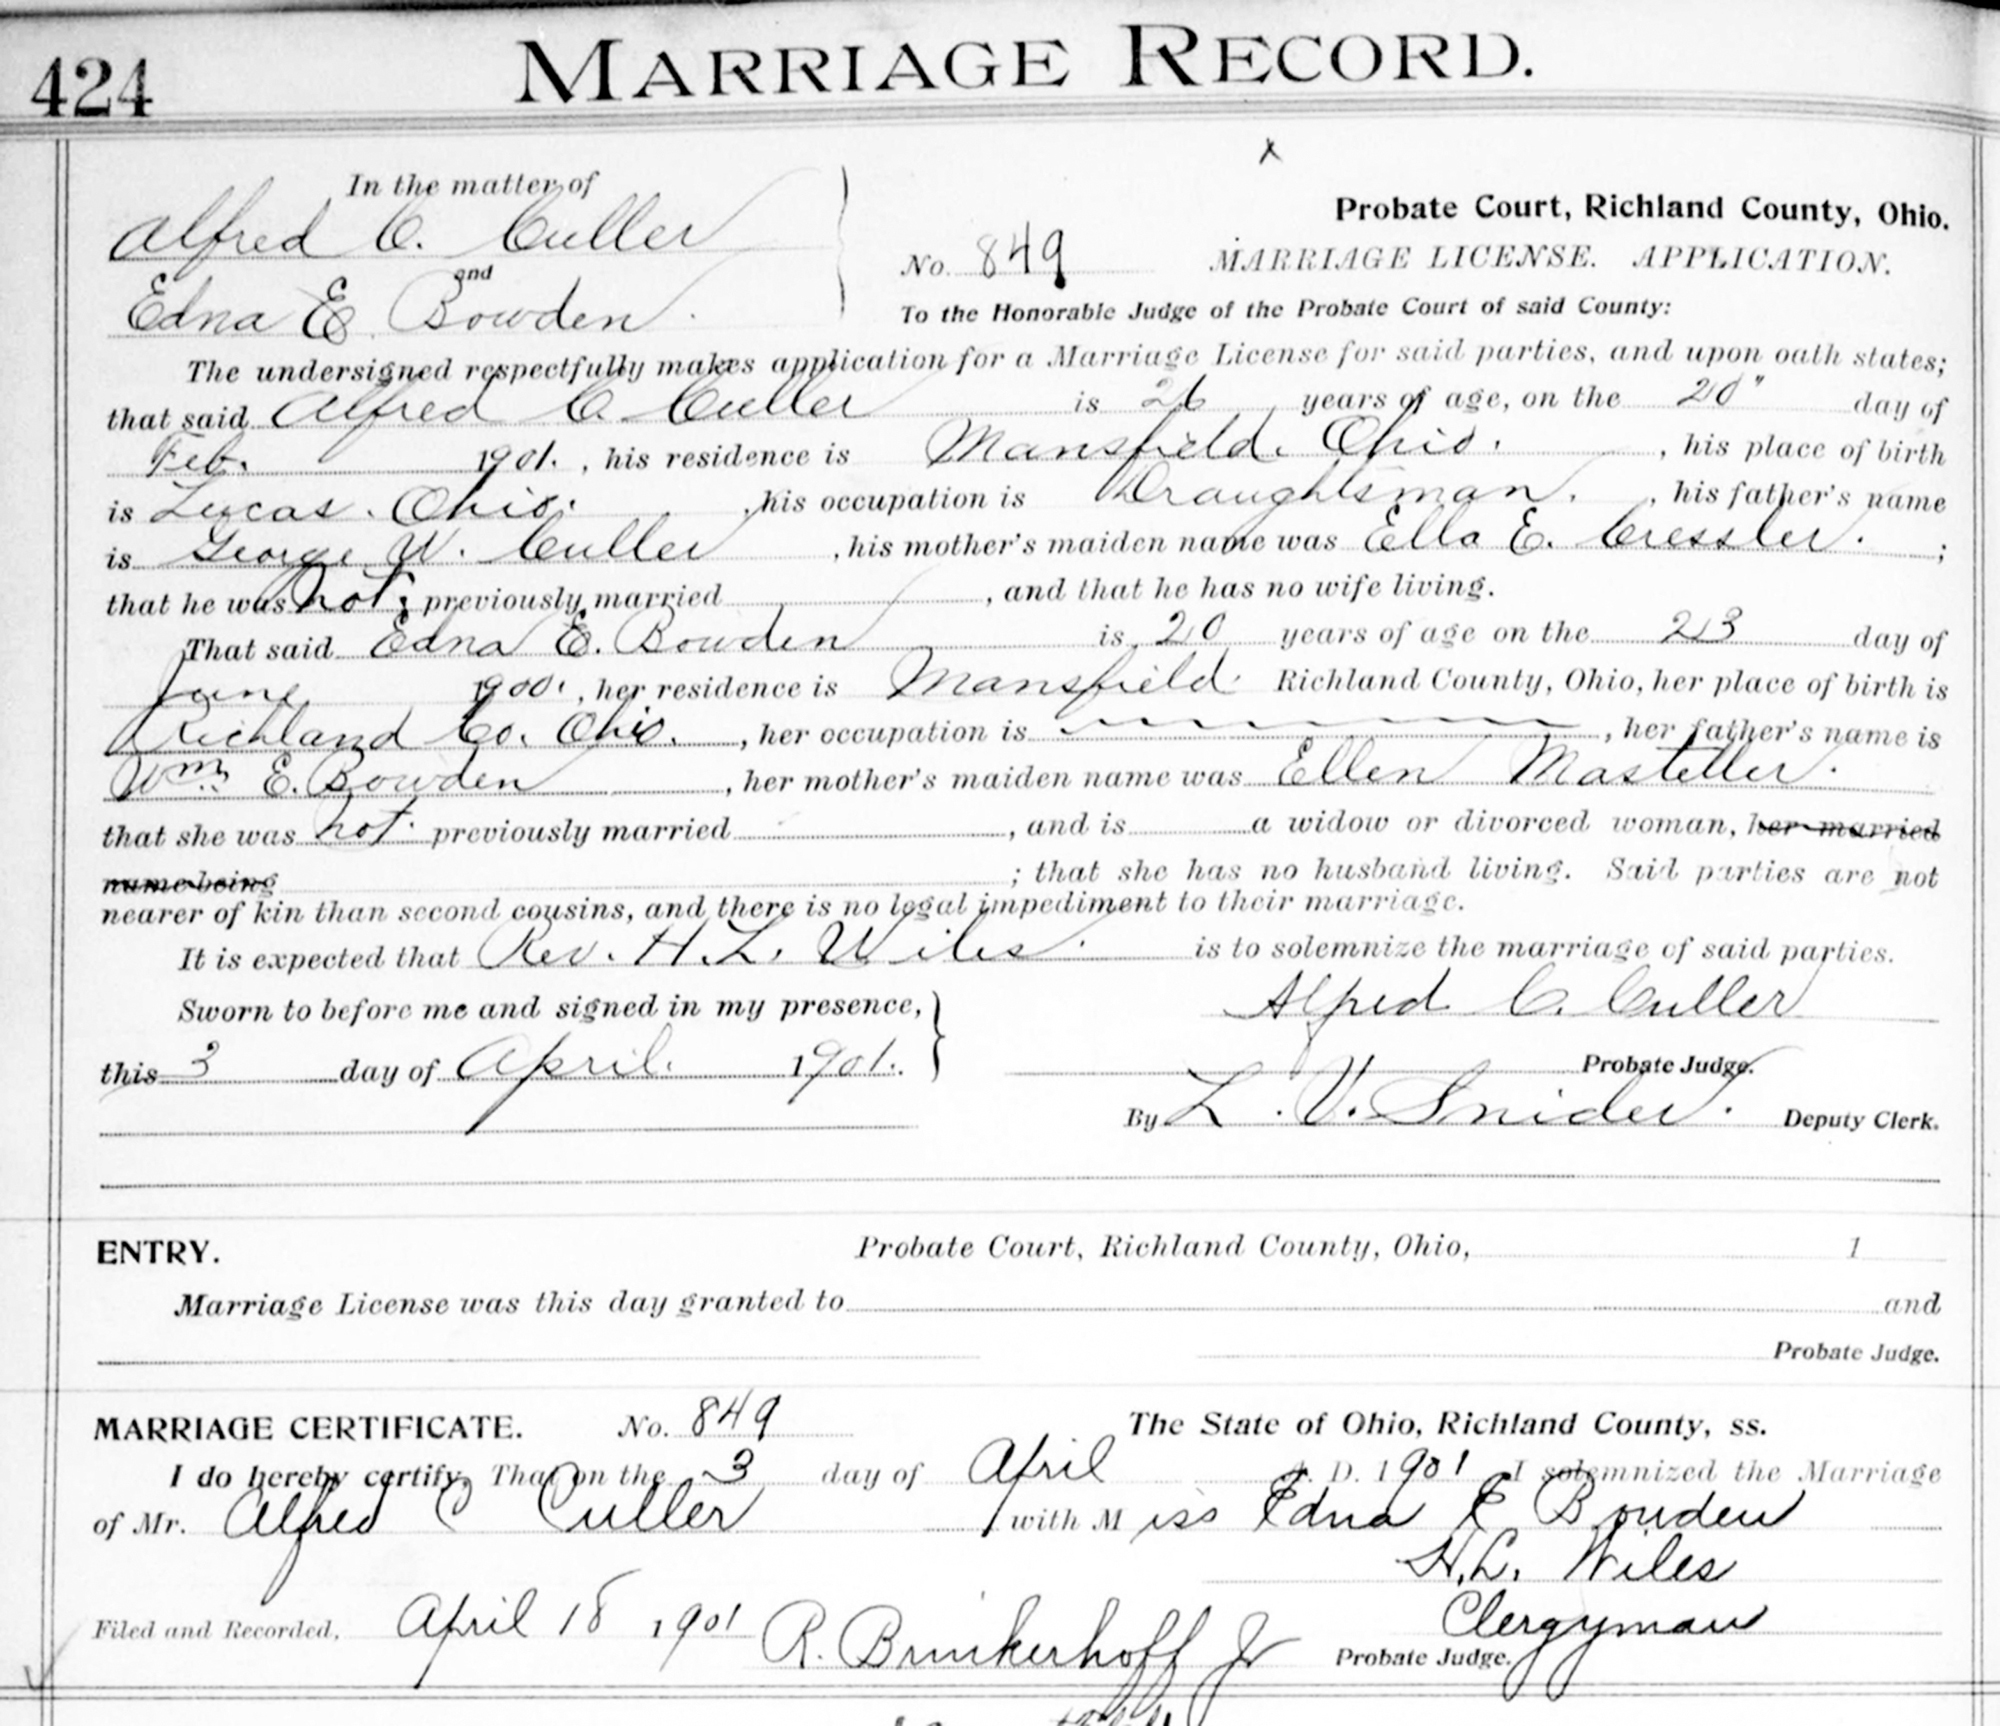 424
MARRIAGE RECORD.
x
In the matter of
Alfred C. Culler
and
Edna E. Bowden.
Probate Court, Richland County, Ohio.
No. 849 MARRIAGE LICENSE. APPLICATION.
To the Honorable Judge of the Probate Court of said County:
The undersigned respectfully makes application for a Marriage License for said parties, and upon oath states;
that said Alfred C. Culler is 26 years of age, on the 20" day of
Feb. 1901. , his residence is Mansfield. Ohio. , his place of birth
is Lucas. Ohio. , his occupation is Draughtsman. , his father's name
is George W. Culler , his mother's maiden name was Ella E. Cressler. ;
that he was not. previously married , and that he has no wife living.
That said Edna E. Bowden is 20 years of age on the 23 day of
June 1900. , her residence is Mansfield Richland County, Ohio, her place of birth is
Richland Co. Ohio. , her occupation is , her father's name is
Wm. E. Bowden , her mother's maiden name was Ellen Masteller.
that she was not. previously married , and is a widow or divorced woman, her married
name being ; that she has no husband living. Said parties are not
nearer of kin than second cousins, and there is no legal impediment to their marriage.
It is expected that Rev. H. L. Wiles. is to solemnize the marriage of said parties.
Sworn to before me and signed in my presence, Alfred C. Culler
this 3 day of April. 1901. Probate Judge.
By L. V. Snider. Deputy Clerk.
ENTRY. Probate Court, Richland County, Ohio, 1
Marriage License was this day granted to and
Probate Judge.
MARRIAGE CERTIFICATE. No. 849 The State of Ohio, Richland County, ss.
I do hereby certify, That on the 3 day of April A. D. 1901 I solemnized the Marriage
of Mr. Alfred C Culler with Miss Edna E Bowden
H. L. Wiles
Clergyman
Filed and Recorded, April 18 1901 R. Brinkerhoff Jr Probate Judge.